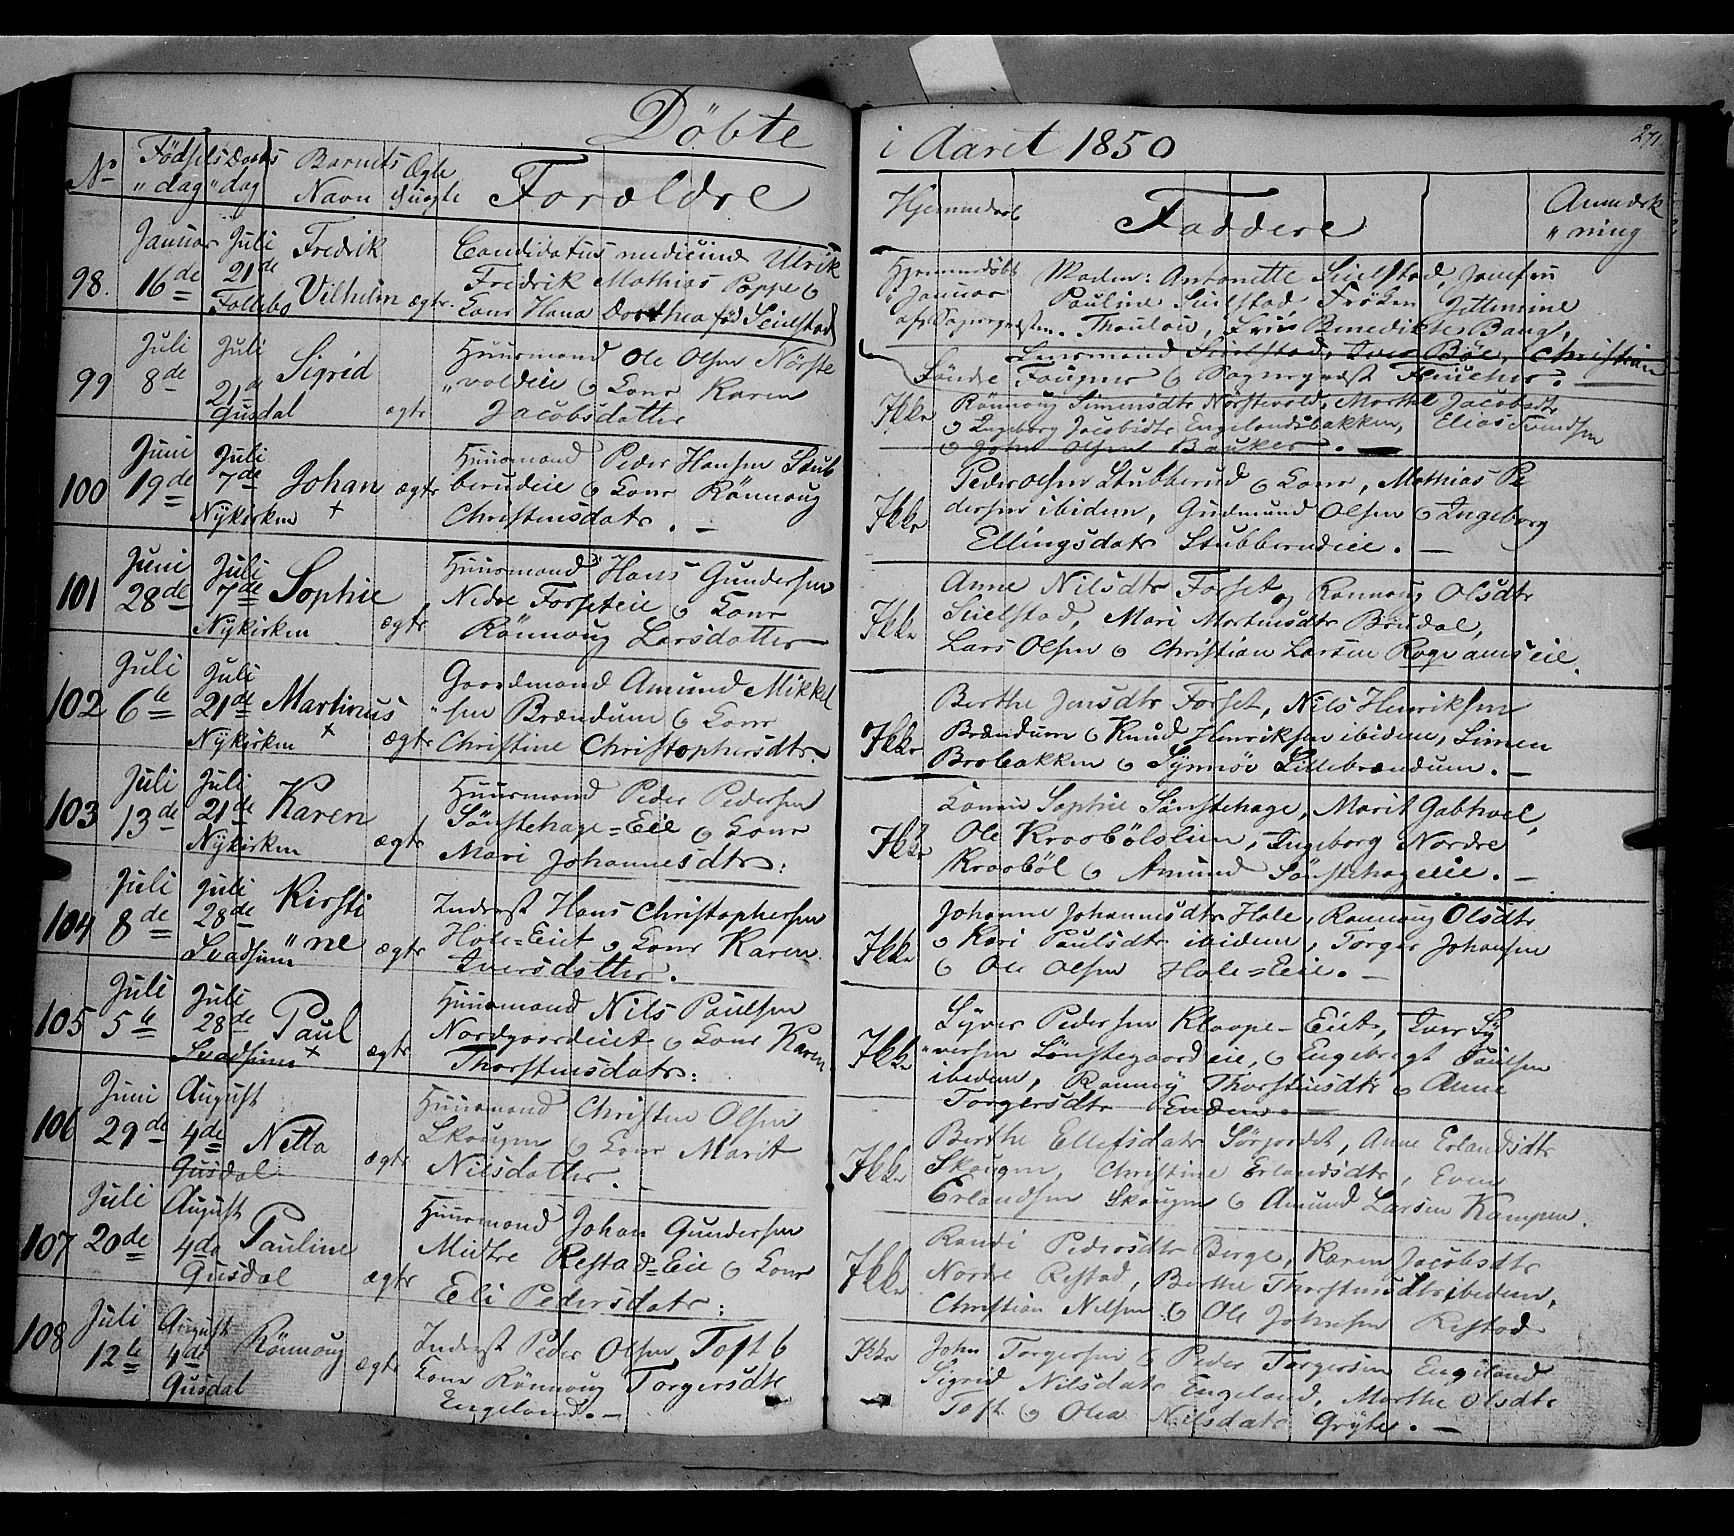 Döbte
i Aaret 1850
271
No Födsels Daabs Barnets Ægte
"dag "dag Navn Forældre
Hjemmedøbt Faddere Anmærk
"ning
98. Januar 16de Juli 21de Follebo Fredrik Vilhelm ægte.
Candidatus medicina Ulrik
Fredrik Mathias Poppe &
Kone Hana Dorthea fød Seielstad
Hjemmedøbt Madm: Antonette Seielstad, Jomfru
Januar Pauline Seielstad, Frøken Jettemine
af Sognepræsten. Thaulow, Benedikte Bang,
Lensmand Seielstad, Iver Böe, Christian
Söndre Fougner & Sognepræst
99 Juli 8de Juli 21de Gusdal Sigrid ægte
Huusmand Ole Olsen Nörste
"voldeie & Kone Karen
Jacobsdatter
Ikke Rönnoug Simensdtr Nörstevold, Marthe Jacobsdtr
& Ingeborg Jacobsdtr Engelandsbakken, Elias Svendsen
& John Olsen Bauker.
100 Juni 19de Juli 7de Nykirken Johan + ægte
Huusmand Peder Hansen Stub
berudeie & Kone Rönnoug
Christensdatr.
Ikke Peder Olsen Stubberud & Kone, Mathias Pe
dersen ibidem, Gudmund Olsen & Ingeborg
Ellingsdatr Stubberudeie.
101 Juni 28de Juli 7de Nykirken Sophie ægte
Huusmand Hans Gundersen
Nedre Forseteie & Kone
Rönnoug Larsdatter
Ikke Anne Nilsdtr Forset og Rønnoug Olsdtr
Seielstad, Mari Mortensdtr Brudal,
Lars Olsen & Christian Larsen Rognaaseie.
102 Juli 6te Juli 21de Nykirken Martinus + ægte
Gaardmand Amund Mikkel
"sen Brændum & Kone
Christine Christophersdtr.
Ikke Berthe Jensdtr Forset, Nils Henriksen
Brændum & Knud Henriksen ibidem, Simen
Brobakken & Synnöv Lillebrændum.
103 Juli 13de Juli 21de Nykirken Karen ægte
Huusmand Peder Pedersen
Sönstehage=Eie & Kone
Mari Johannesdtr:
Ikke Konen Sophie Sönstehage, Marit
Ole Kroobölslien, Ingeborg Nordre
Krooböl & Amund Sönstehageeie.
104 Juli 8de Juli 28de Svadsum Kirsti "ne ægte
Inderst Hans Christophersen
Hole=Eiet & Kone Karen
Iversdatter.
Ikke Johanne Johannesdtr Hole, Rønnoug Olsdtr
& Kari Paulsdtr ibidem, Torger Johansen
& Ole Olsen Hole=Eie.
105 Juli 5te Juli 28de Svadsum Paul + ægte
Huusmand Nils Paulsen
Nordgaardeiet & Kone Karen
Thorstensdatr:
Ikke Syver Pedersen Klaape-Eiet, Iver Sy
"versen Sönstegaardeie, & Engebregt Paulsen
ibidem, Rønnoug Thorstensdtr & Anne
Torgersdtr Enden.
106 Juni 29de August 4de Gusdal Netta ægte
Huusmand Christen Olsen
Skougen & Kone Marit
Nilsdatter.
Ikke Berthe Ellefsdatr Sörjordet, Anne Erlandsdtr
Skougen, Christine Erlandsdtr, Even
Erlandsen Skougen & Amund Larsen Kampen.
107 Juli 20de August 4de Gusdal Pauline ægte
Huusmand Johan Gundersen
Midtre Restad=Eie & Kone
Eli Pedersdatr:
Ikke Randi Pedersdtr Berge, Karen Jacobsdtr
Nordre Restad, Berthe Thorstensdtr ibidem,
Christian Nilsen & Ole Johnsen Restad
108 Juli 12te August 4de Gusdal Rönnoug ægte
Inderst Peder Olsen Toft &
Kone Rönnoug Torgersdtr
Engeland.
Ikke John Torgersen & Peder Torgersen Engeland
Sigrid Nilsdatr Engeland, Marthe Olsdtr
Toft & Olea Nilsdatr Gryte.